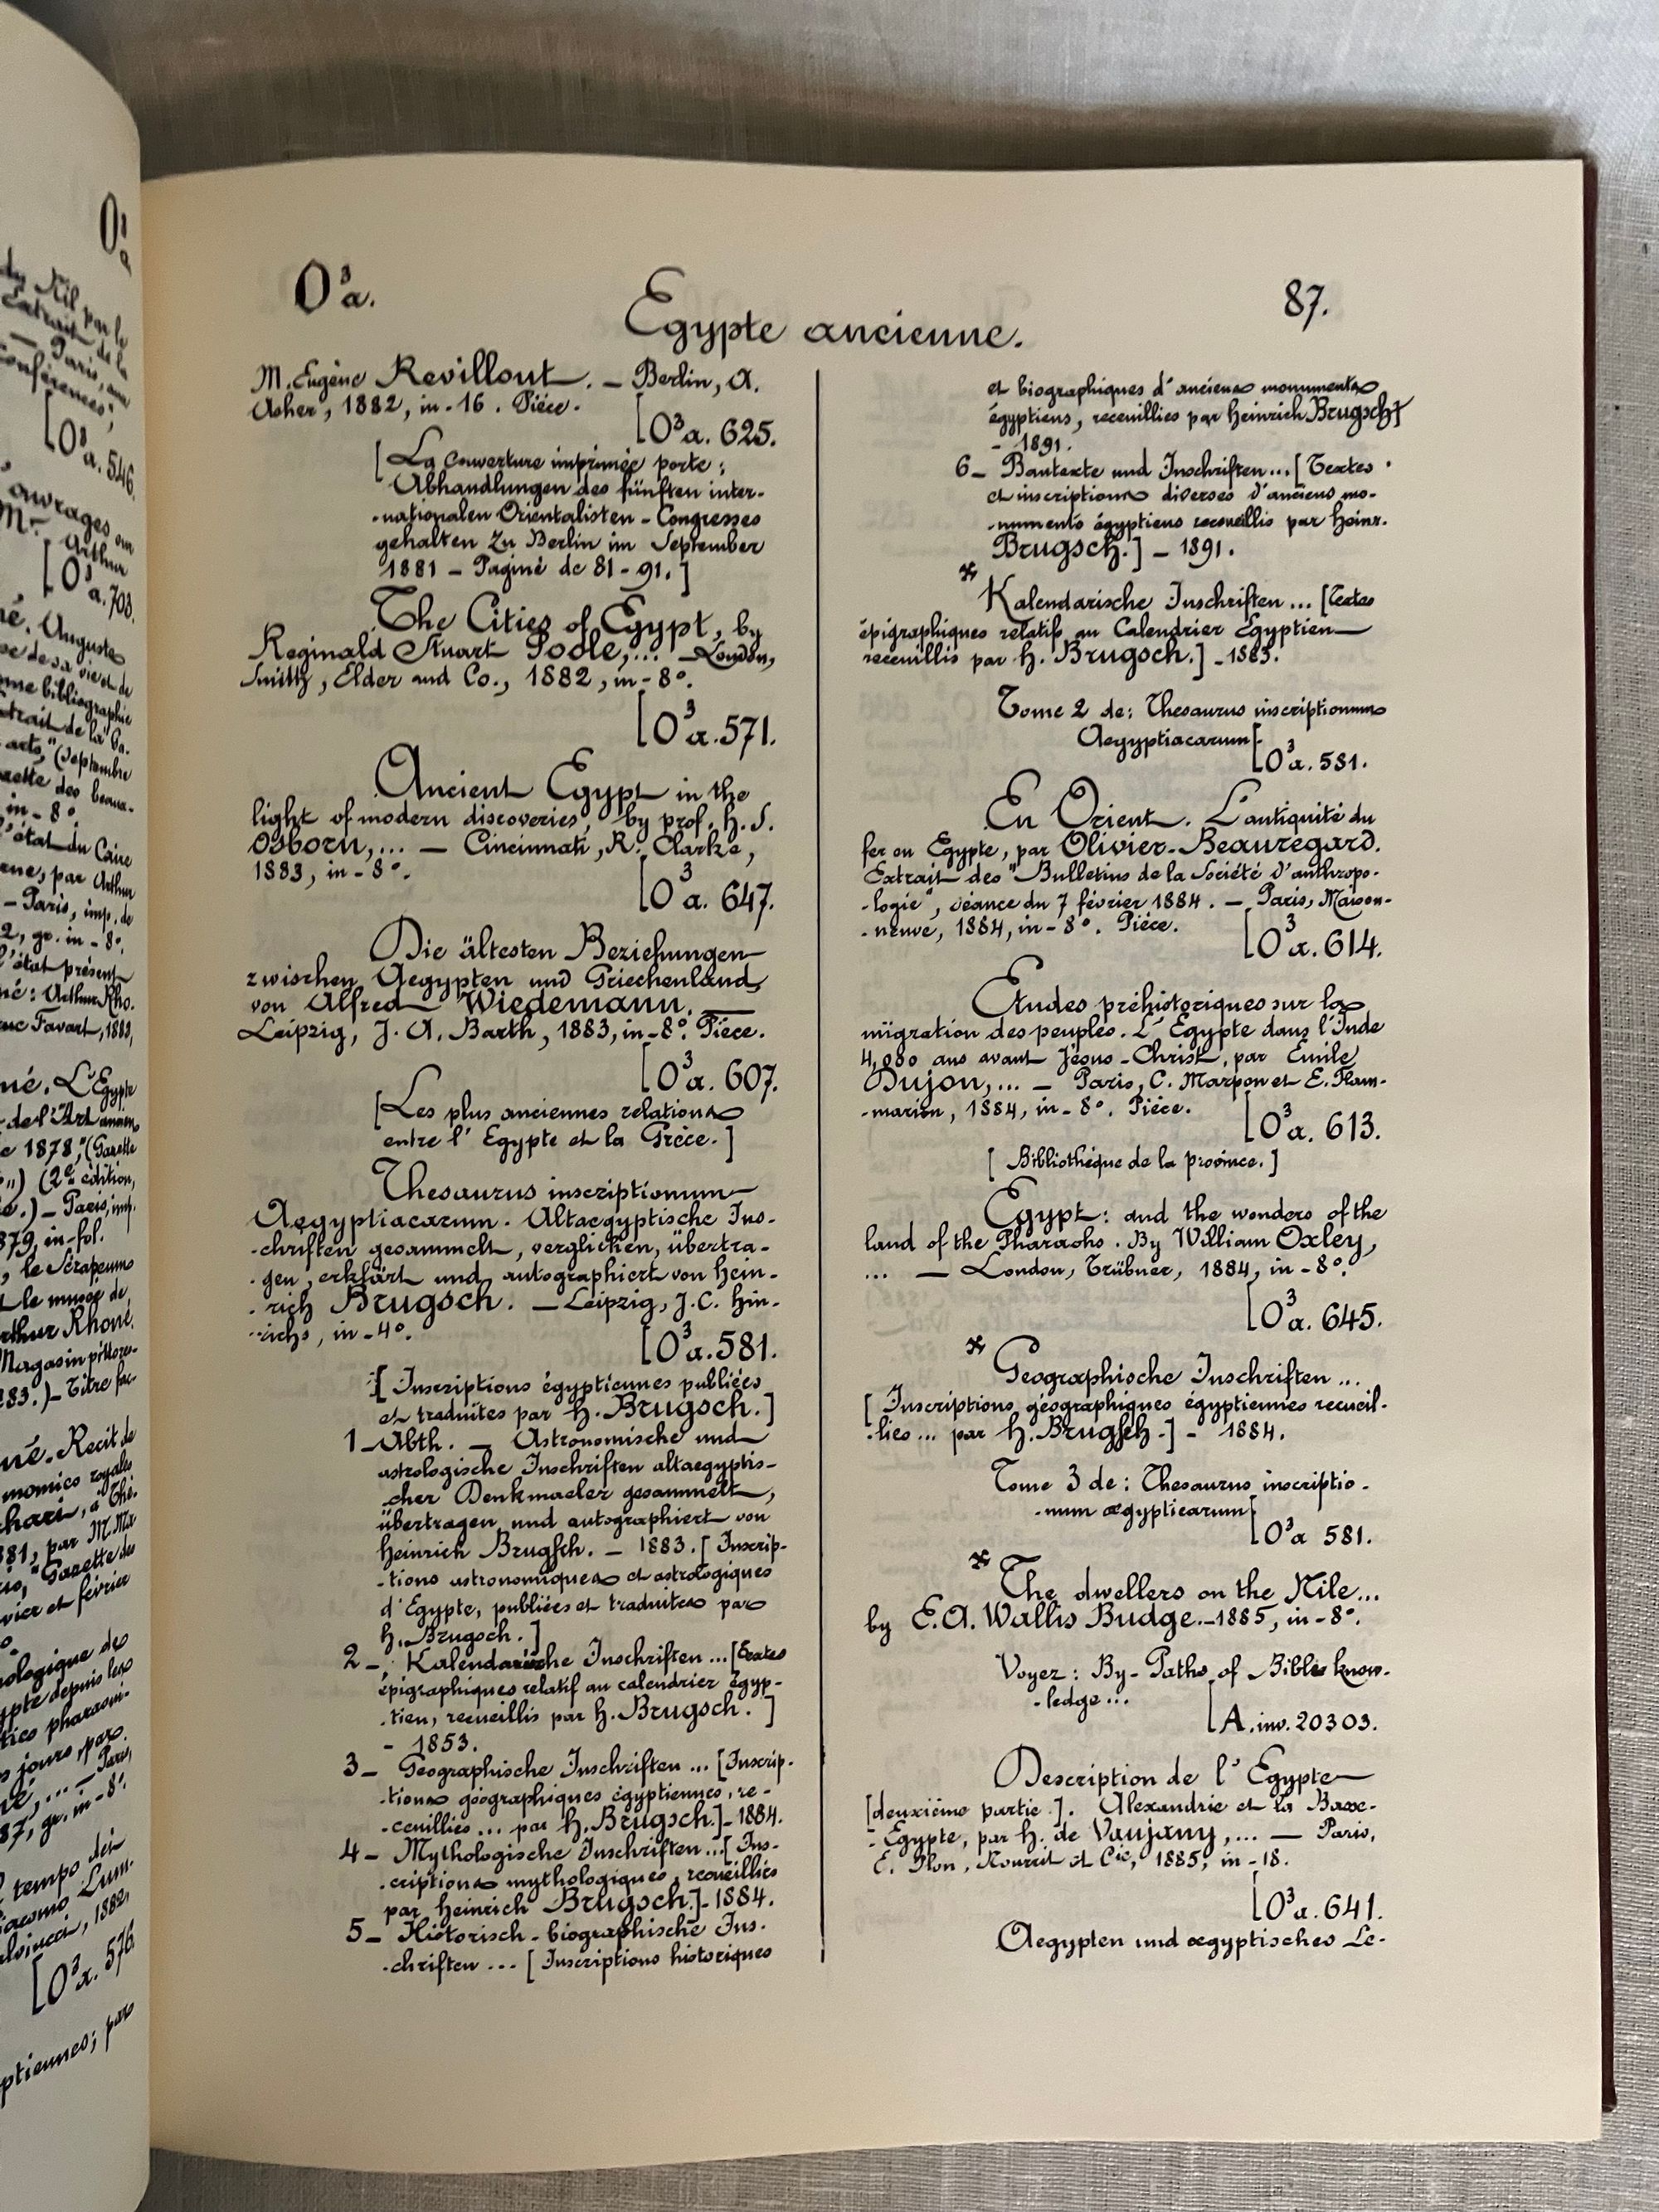 O³a.
Egypte ancienne.
87.
M. Eugène Revillout. — Berlin, A.
Asher, 1882, in-16. Pièce.
[O³a. 625.
[La couverture imprimée porte :
Abhandlungen des fünften inter-
-nationalen Orientalisten-Congresses
gehalten zu Berlin im September
1881 — Paginé de 81-91.]
The Cities of Egypt, by
Reginald Stuart Poole,... — London,
Smith, Elder and Co., 1882, in-8°.
[O³a. 571.
Ancient Egypt in the
light of modern discoveries, by prof. H. S.
Osborn,... — Cincinnati, R. Clarke,
1883, in-8°.
[O³a. 647.
Die ältesten Beziehungen
zwischen Aegypten und Griechenland,
von Alfred Wiedemann.
Leipzig, J. A. Barth, 1883, in-8°. Pièce.
[O³a. 607.
[Les plus anciennes relations
entre l'Egypte et la Grèce.]
Thesaurus inscriptionum
Aegyptiacarum. Altaegyptische Ins-
-chriften gesammelt, verglichen, übertra-
-gen, erklärt und autographiert von Hein-
-rich Brugsch. — Leipzig, J.C. Hin-
-richs, in-4°.
[O³a. 581.
[Inscriptions égyptiennes publiées
et traduites par H. Brugsch.]
1 — Abth. — Astronomische und
astrologische Inschriften altaegyptis-
cher Denkmaeler gesammelt,
übertragen und autographiert von
Heinrich Brugsch. — 1883. [Inscrip-
-tions astronomiques et astrologiques
d'Egypte, publiées et traduites par
H. Brugsch.]
2 —, Kalendarische Inschriften ... [Textes
épigraphiques relatif au calendrier égyp-
-tien, recueillis par H. Brugsch.]
- 1853.
3 — Geographische Inschriften ... [Inscrip-
-tions géographiques égyptiennes, re-
-ceuillies ... par H. Brugsch.] - 1884.
4 — Mythologische Inschriften ... [Ins-
-criptions mythologiques, recueillies
par Heinrich Brugsch.] - 1884.
5 — Historisch-biographische Ins-
-chriften ... [Inscriptions historiques
et biographiques d'anciens monuments
égyptiens, receuillies par Heinrich Brugsch]
- 1891.
6 — Bautexte und Inschriften ... [Textes
et inscriptions diverses d'anciens mo-
-numents égyptiens receuillis par Heinr.
Brugsch.] — 1891.
* Kalendarische Inschriften ... [Textes
épigraphiques relatifs au Calendrier Egyptien
receuillis par H. Brugsch.] - 1883.
Tome 2 de : Thesaurus inscriptionum
Aegyptiacarum
[O³a. 581.
En Orient. L'antiquité du
fer en Egypte, par Olivier-Beauregard.
Extrait des "Bulletins de la Société d'anthropo-
-logie", séance du 7 février 1884. — Paris, Maison-
-neuve, 1884, in-8°. Pièce.
[O³a. 614.
Etudes préhistoriques sur la
migration des peuples. L'Egypte dans l'Inde
4,000 ans avant Jésus-Christ, par Émile
Dujon,... — Paris, C. Marpon et E. Flam-
-marion, 1884, in-8°. Pièce.
[O³a. 613.
[Bibliothèque de la province.]
Egypt : and the wonders of the
land of the Pharaohs. By William Oxley,
... — London, Trübner, 1884, in-8°.
[O³a. 645.
* Geographische Inschriften ...
[Inscriptions géographiques égyptiennes recueil-
-lies ... par H. Brugsch.] - 1884.
Tome 3 de : Thesaurus inscriptio-
-num ægypticarum
[O³a 581.
* The dwellers on the Nile...
by E.A. Wallis Budge. - 1885, in-8°.
Voyez : By-Paths of Bible know-
-ledge...
[A. inv. 20303.
Description de l'Egypte
[deuxième partie.]. Alexandrie et la Basse-
-Egypte, par H. de Vaujany,... — Paris,
E. Plon, Nourrit et Cie, 1885, in-18.
[O³a. 641.
Aegypten und ægyptisches Le-